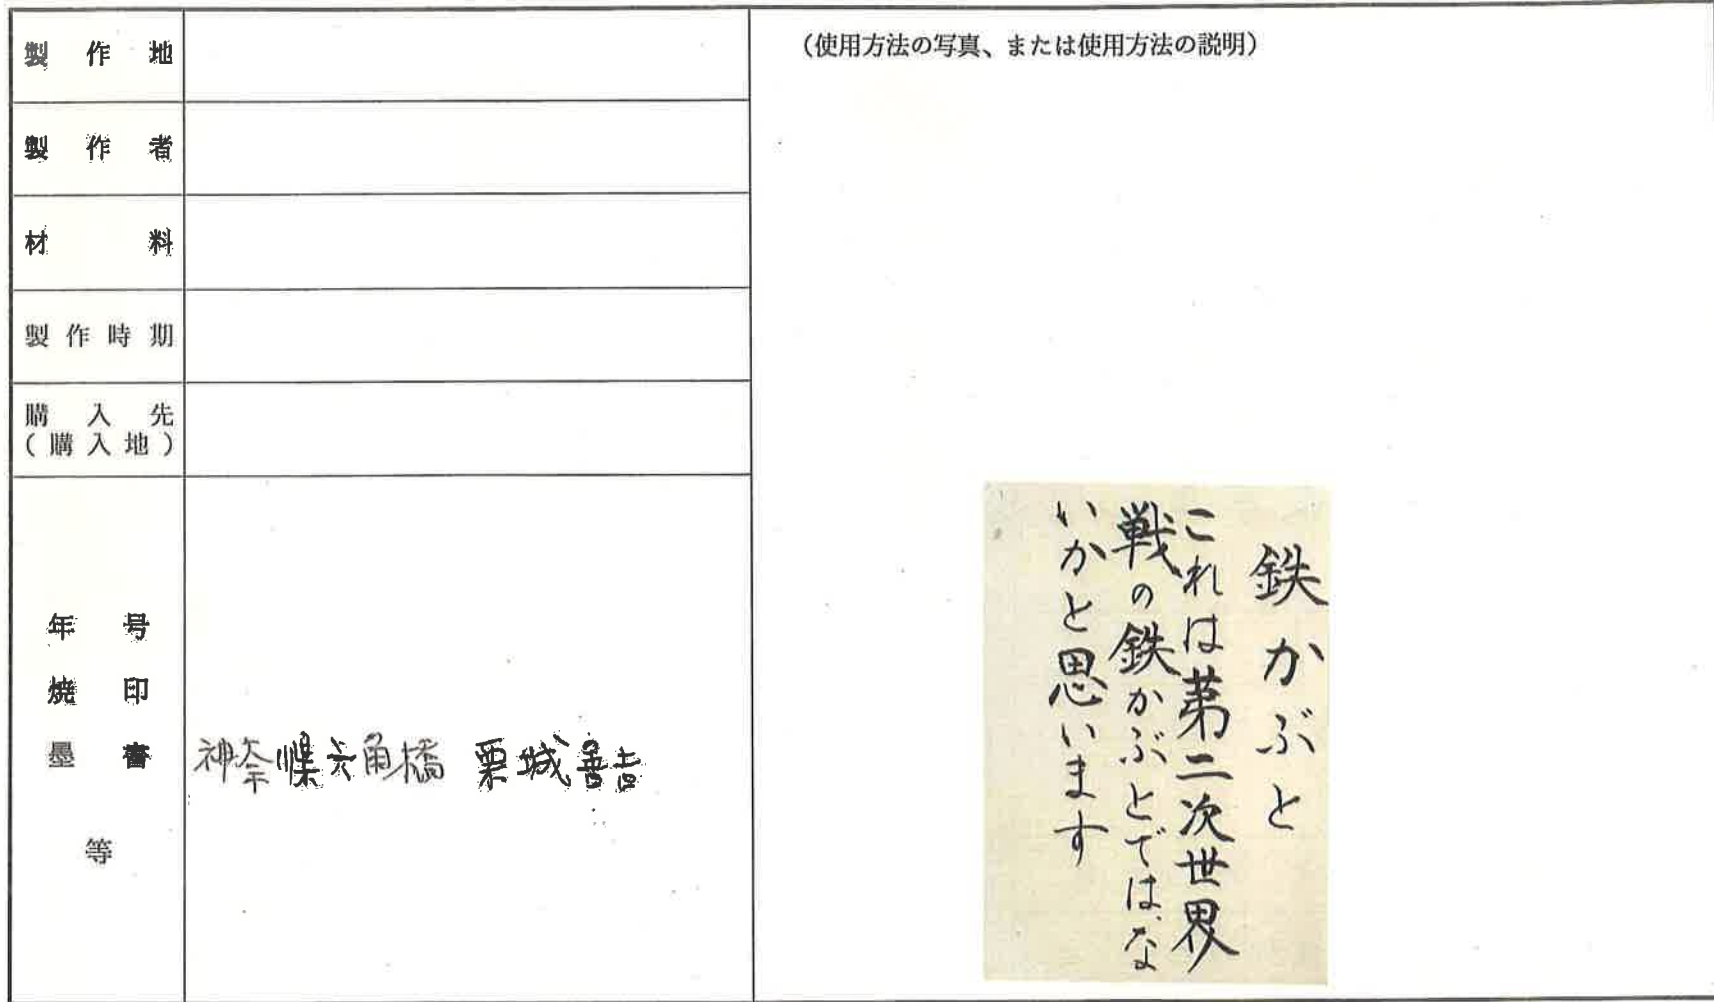 製作地
製作者
材料
製作時期
購入先
(購入地)
年号
焼印
墨書
等
神奈 六角橋 栗城善吉
(使用方法の写真、または使用方法の説明)
鉄かぶと
これは第二次世界
戦の鉄かぶとでは、な
いかと思います